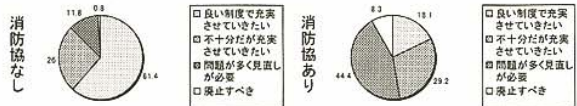 消防協なし
11.8
0.8
26
61.4
□良い制度で充実
させていきたい
不十分だが充実
させていきたい
問題が多く見直し
が必要
□廃止すべき
消防協あり
8.3
18.1
44.4
29.2
□良い制度で充実
させていきたい
不十分だが充実
させていきたい
問題が多く見直し
が必要
□廃止すべき